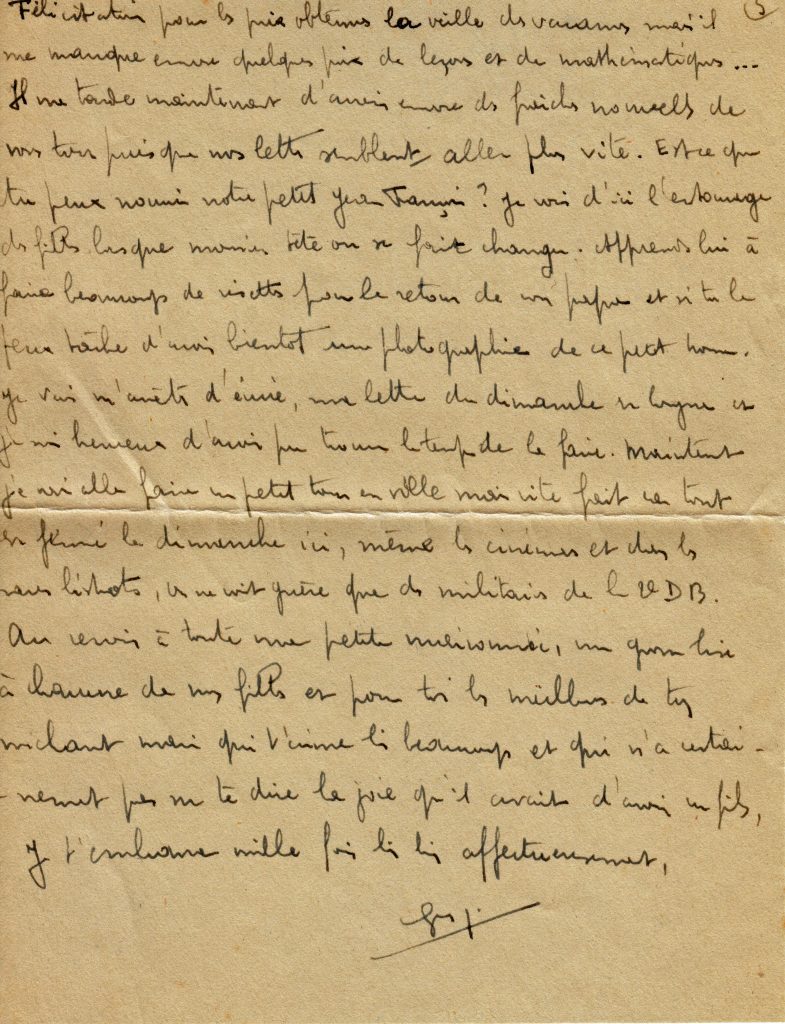 5
Félicitations pour les prix obtenus la veille des vacances mais il
me manque encore quelques prix de leçons et de mathématiques...
Il me tarde maintenant d'avoir encore de fraîches nouvelles de
vous tous puisque nos lettres semblent aller plus vite. Est-ce que
tu peux nourrir notre petit Jean François ? Je vois d'ici l'entourage
des filles lorsque monsieur tète ou se fait changer. Apprends lui à
faire beaucoup de risettes pour le retour de son papa et si tu le
peux tâche d'avoir bientôt une photographie de ce petit homme.
Je vais m'arrêter d'écrire, ma lettre du dimanche se et
je suis heureux d'avoir pu trouver le temps de la faire. Maintenant
je vais aller faire un petit tour en ville mais vite fait car tout
est fermé le dimanche ici, même les cinémas et dans les
rares bistrots, on ne voit guère que des militaires de la 2e DB.
Au revoir à toute ma petite , un gros bise
à chacune de nos filles et pour toi les meilleurs de ton
méchant mari qui t'aime beaucoup et qui n'a certai-
-nement pas su te dire la joie qu'il avait d'avoir un fils,
Je t'embrasse mille fois bien bien affectueusement,